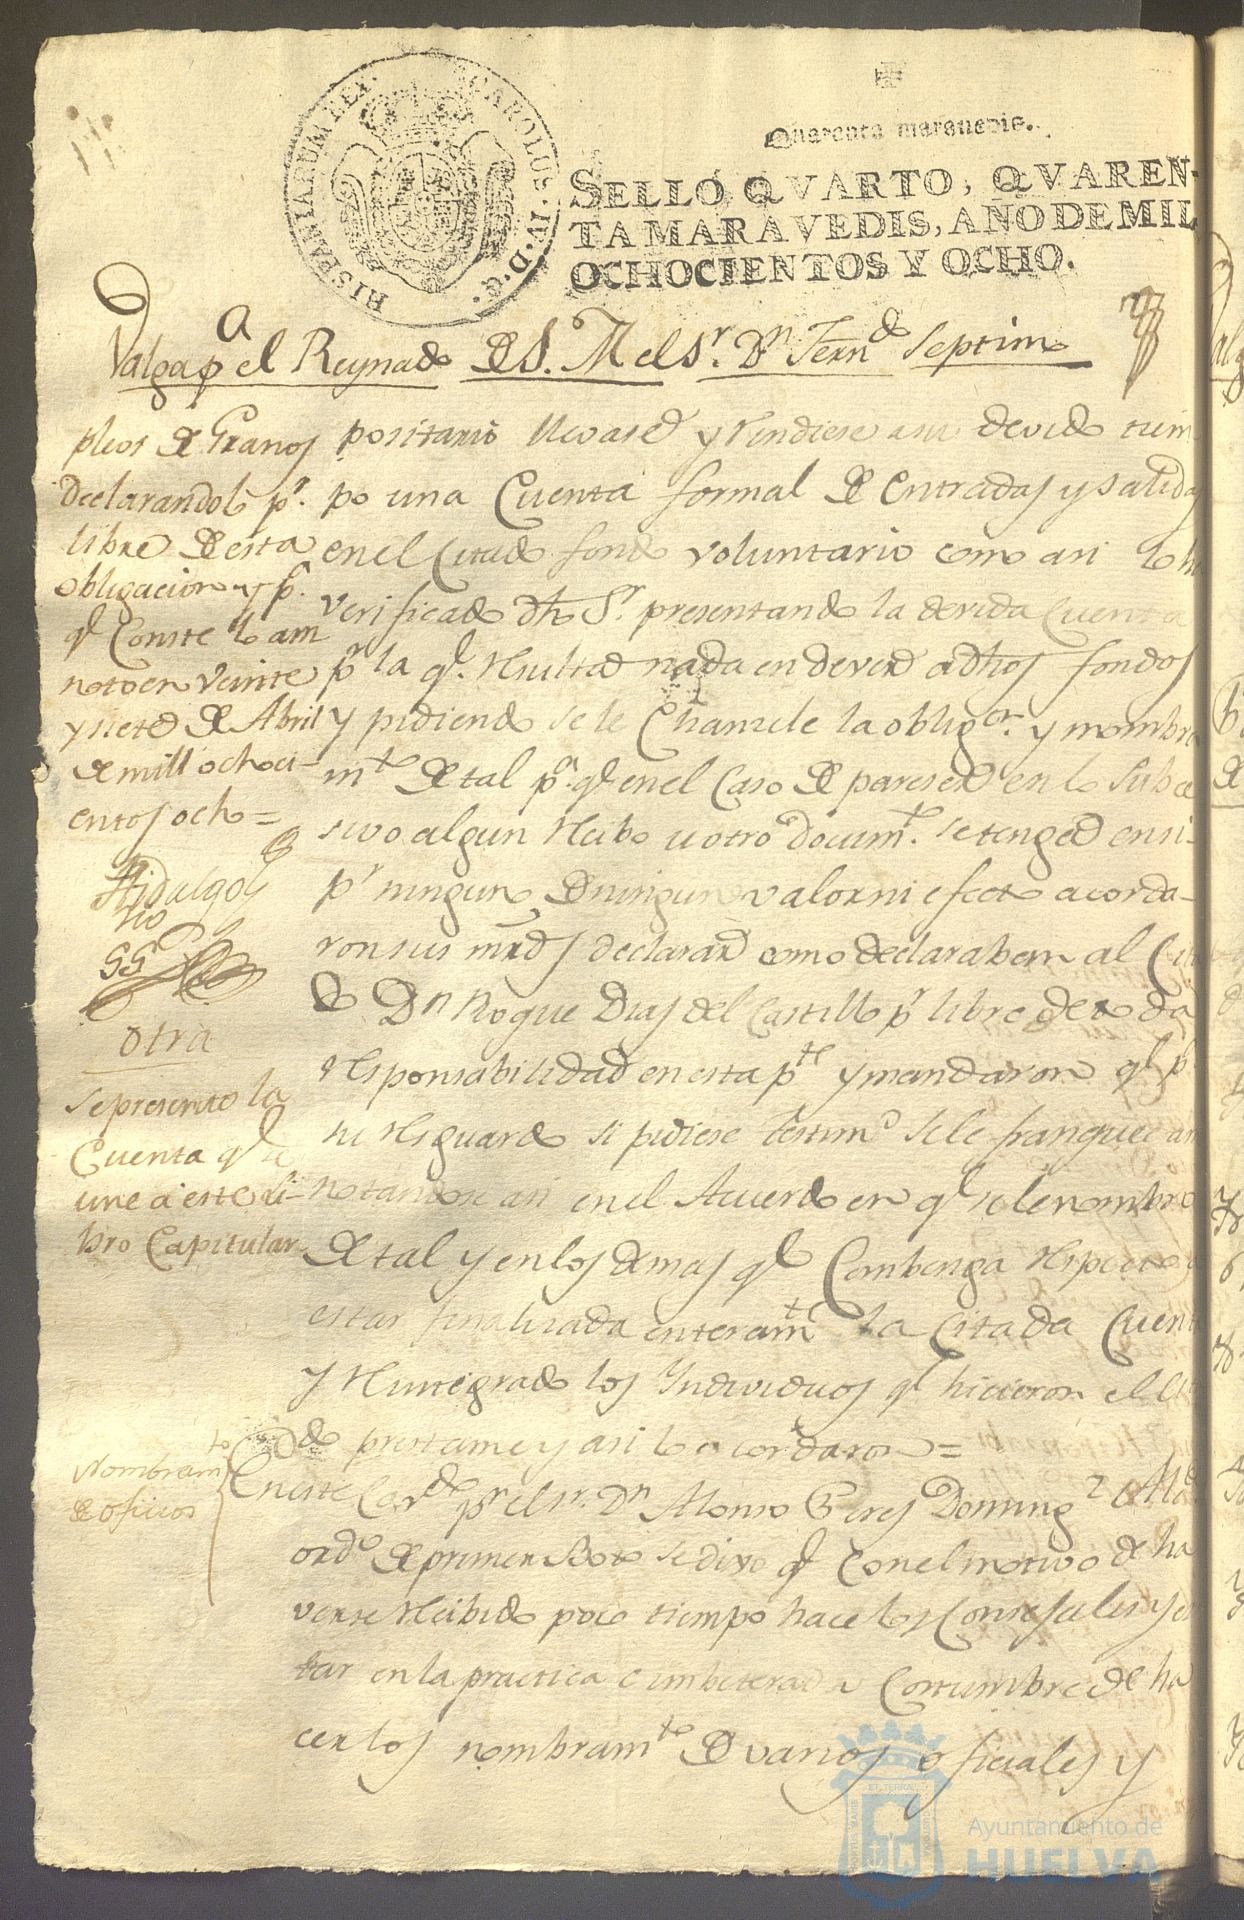 HISPANIARUM REX. CAROLUS. IV. D. G.
Quarenta marauedis.
SELLO QVARTO, QVAREN-
TA MARAVEDIS, AÑO DE MIL
OCHOCIENTOS Y OCHO.
Valga pa el Reynado de S. M el Sr. Dn Ferndo Septimo
pleos de Granos
declarandolo pr.
libre de esta
obligacion y pa.
qe Conste lo am
noto en veinte
y siete de Abril
de mill ochoci-
entos ocho =
Hidalgo
SSo
Otra
se presento la
Cuenta qe se
une a este Li-
bro Capitular
positario llevase y rindiese a su devido tiem
po una Cuenta formal de Entradas y salidas
en el Citado fondo voluntario como asi lo ha
verificado dho Sr. presentando la devida Cuenta
pr la qe. resulta nada en dever a dhos fondos
y pidiendo se le Chancele la obligon. y nombra
mto de tal pa. qe en el Caso de pareser en lo subce
sivo algun recibo u otro docum.to se tenga en si
pr ningun de ningun valor ni efecto acorda-
ron sus mrds declarar como declaraban al Cita
do Dn Roque Dias del Castillo pr libre de toda
responsabilidad en esta pte y mandaron qe pa
su resguardo si pidiese testimo se le franquee an
notandose asi en el Acuerdo en qe se le nombro
de tal y en los demas qe Combenga respecto a
estar finalizada enteramte la Citada Cuenta
y reintegrado los Yndividuos qe hicieron el Cita
do prestamo y asi lo acordaron =
Nombramto
de oficios
En este Cavdo pr el sr. Dn Alonso Peres Domingz Alcde
ordo de primer Boto se dixo qe Con el motivo de ha
verse recibido poco tiempo hace los Consejales y es
tar en la practica e imbeterada Costumbre de ha
cer los nombramtos de varios oficiales y
Ayuntamiento de
HUELVA